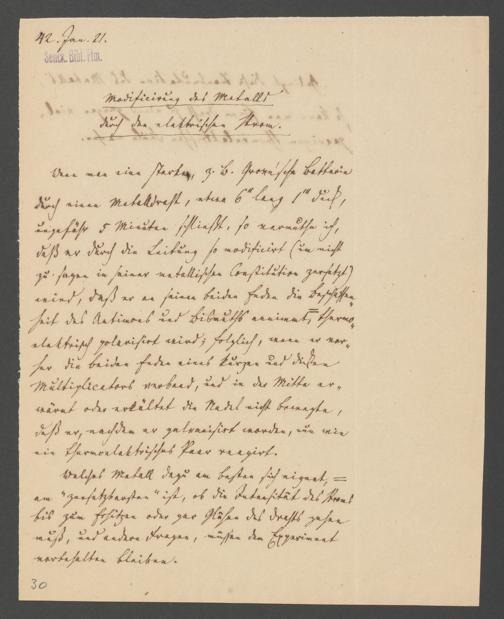 42. Jan. 21.
Senck. Bibl. Ffm.
Modificirung des Metalls
durch den elektrischen Strom.
Wenn man eine starke, z. B. Grove'sche Batterie
durch einen Metalldraht, etwa 6" lang 1''' dick,
ungefähr 5 Minuten schließt, so vermuthe ich,
daß er durch die Leitung so modificirt (um nicht
zu sagen in seiner metallischen Constitution zersetzt)
wird, daß er an seinen beiden Enden die Beschaffen-
heit des Antimons und Bismuths annimmt, = thermo-
elektrisch polarisirt wird; folglich, wenn er vor-
her die beiden Enden eines kurzen und dicken
Multiplicators verband, und in der Mitte er-
wärmt oder erkältet die Nadel nicht bewegte,
daß er, nachdem er galvanisirt worden, nun wie
ein thermoelektrisches Paar reagirt.
Welches Metall dazu am besten sich eignet, =
am "zersetzbarsten" ist, ob die Intensität des Stroms
bis zum Erhitzen oder gar Glühen des Drahts gehen
muß, und andere Fragen, müssen dem Experiment
vorbehalten bleiben.
30